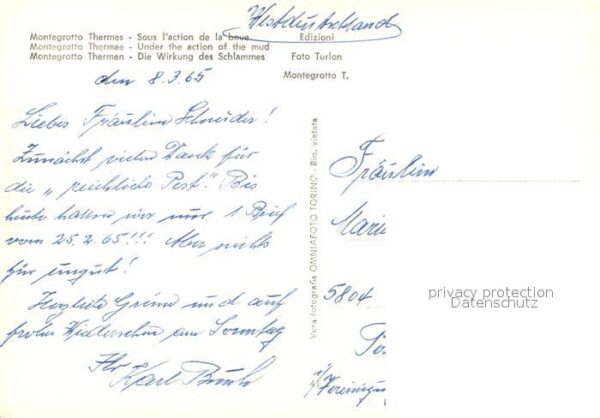 Westdeutschland
Montegrotto Thermes - Sous l'action de la boue
Montegrotto Thermae - Under the action of the mud
Montegrotto Thermen - Die Wirkung des Schlammes
Edizioni
Foto Turlon
Montegrotto T.
den 8.3.65
Liebes Fräulein Schneider!
Zunächst vielen Dank für
die „reichliche Post". Bis
heute hatten wir nur 1 Brief
vom 25.2.65!!! Aber nichts
für ungut!
Herzliche Grüsse und auf
frohes Wiedersehen am Sonntag
Ihr
Karl
Vera Fotografia OMNIAFOTO TORINO - Rip. vietata
Fräulein
Marie
5804
privacy protection
Datenschutz